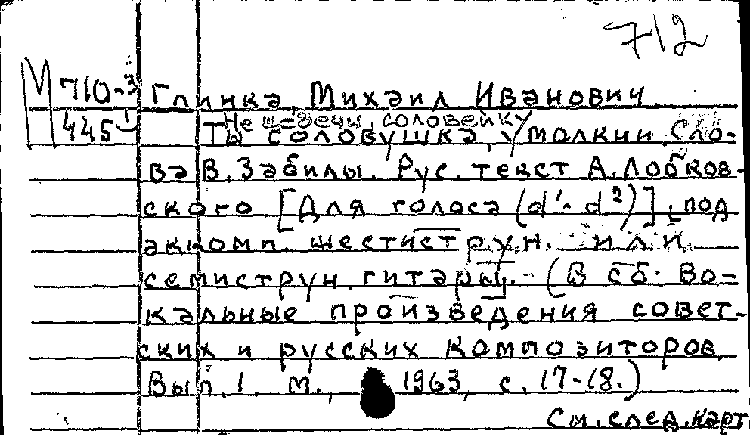 712
М 710-3
445-1
Глинка, Михаил Иванович.
Не щебечи, соловейку
Ты соловушка, умолкни. Сло-
ва В. Забилы. Рус. текст А. Лобков-
ского [Для голоса (d¹-d²)], под
аккомп. шестиструн. или
семиструн. гитары. - (В сб. Во-
кальные произведения совет-
ских и русских композиторов.
Вып. 1. М., 1963, с. 17-18.)
См. след. карт